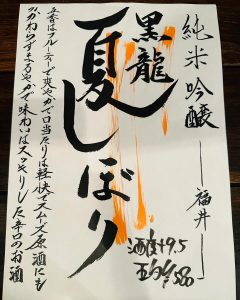 純米吟醸 ―福井―
黒龍
夏しぼり
酒度+9.5
立香はフルーティーで爽やかで口当たりは軽快でスムース原酒にも
かかわらずまろやかで味わいはスッキリした辛口のお酒